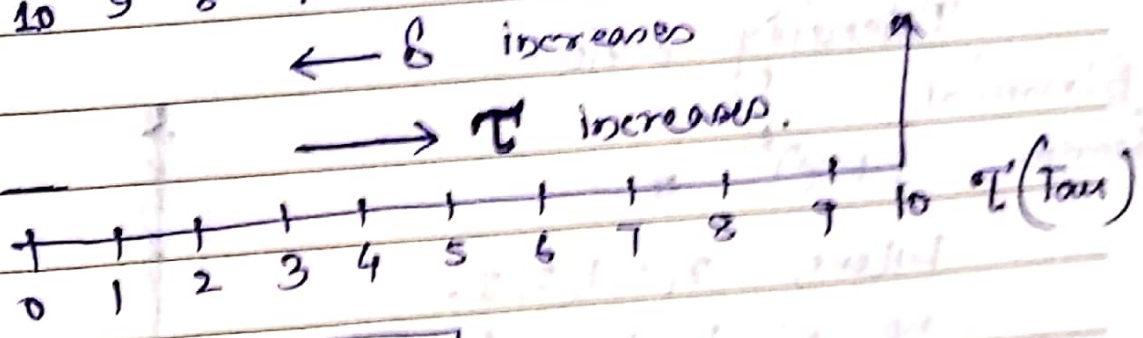 10 9 8
← δ increases
→ τ increases.
0 1 2 3 4 5 6 7 8 9 10 τ (Tau)